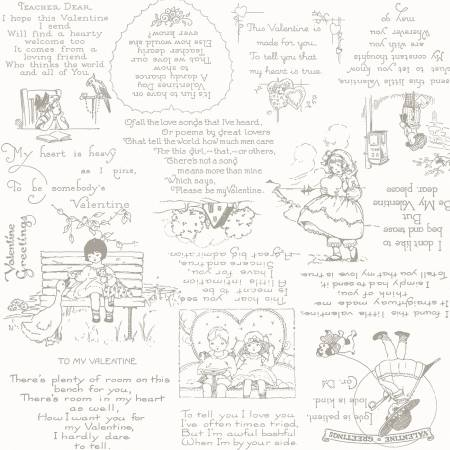 TEACHER, DEAR,
I hope this Valentine
I send
Will find a hearty
welcome too
It comes from a
loving friend
Who thinks the world
and all of You.
It's fun to have on
Valentines Day
A dandy chance
to show
That we love our
Teacher dearly
Else how would she
ever know?
This Valentine is
made for you.
To tell you that
my heart is true.
send this little Valentine
Just to let you know
My constant thoughts
are with you
Wherever
you may go
Of all the love songs that I've heard,
Or poems by great lovers
That tell the world how much men care
For this girl, — that, — or others,
There's not a song
means more than mine
Which says,
Please be my Valentine.
My heart is heavy
as I pine,
To be somebody's
Valentine
I don't like to
beg and tease
But
Be My Valentine
dear please
Valentine
Greetings
This heart you see
Is meant to be
A little intimation
I have for you,
Sincere and true,
A great big admiration.
I found this little valentine,
It straightway made me
think of you,
I simply had to send it
To tell you that my love is true
TO MY VALENTINE.
There's plenty of room on this
bench for you,
There's room in my heart
as well,
How I want you for
my Valentine,
I hardly dare
to tell.
To tell you I love you
I've often times tried,
But I'm awful bashful
When I'm by your side.
Love is patient,
Love is kind.
VALENTINE GREETINGS